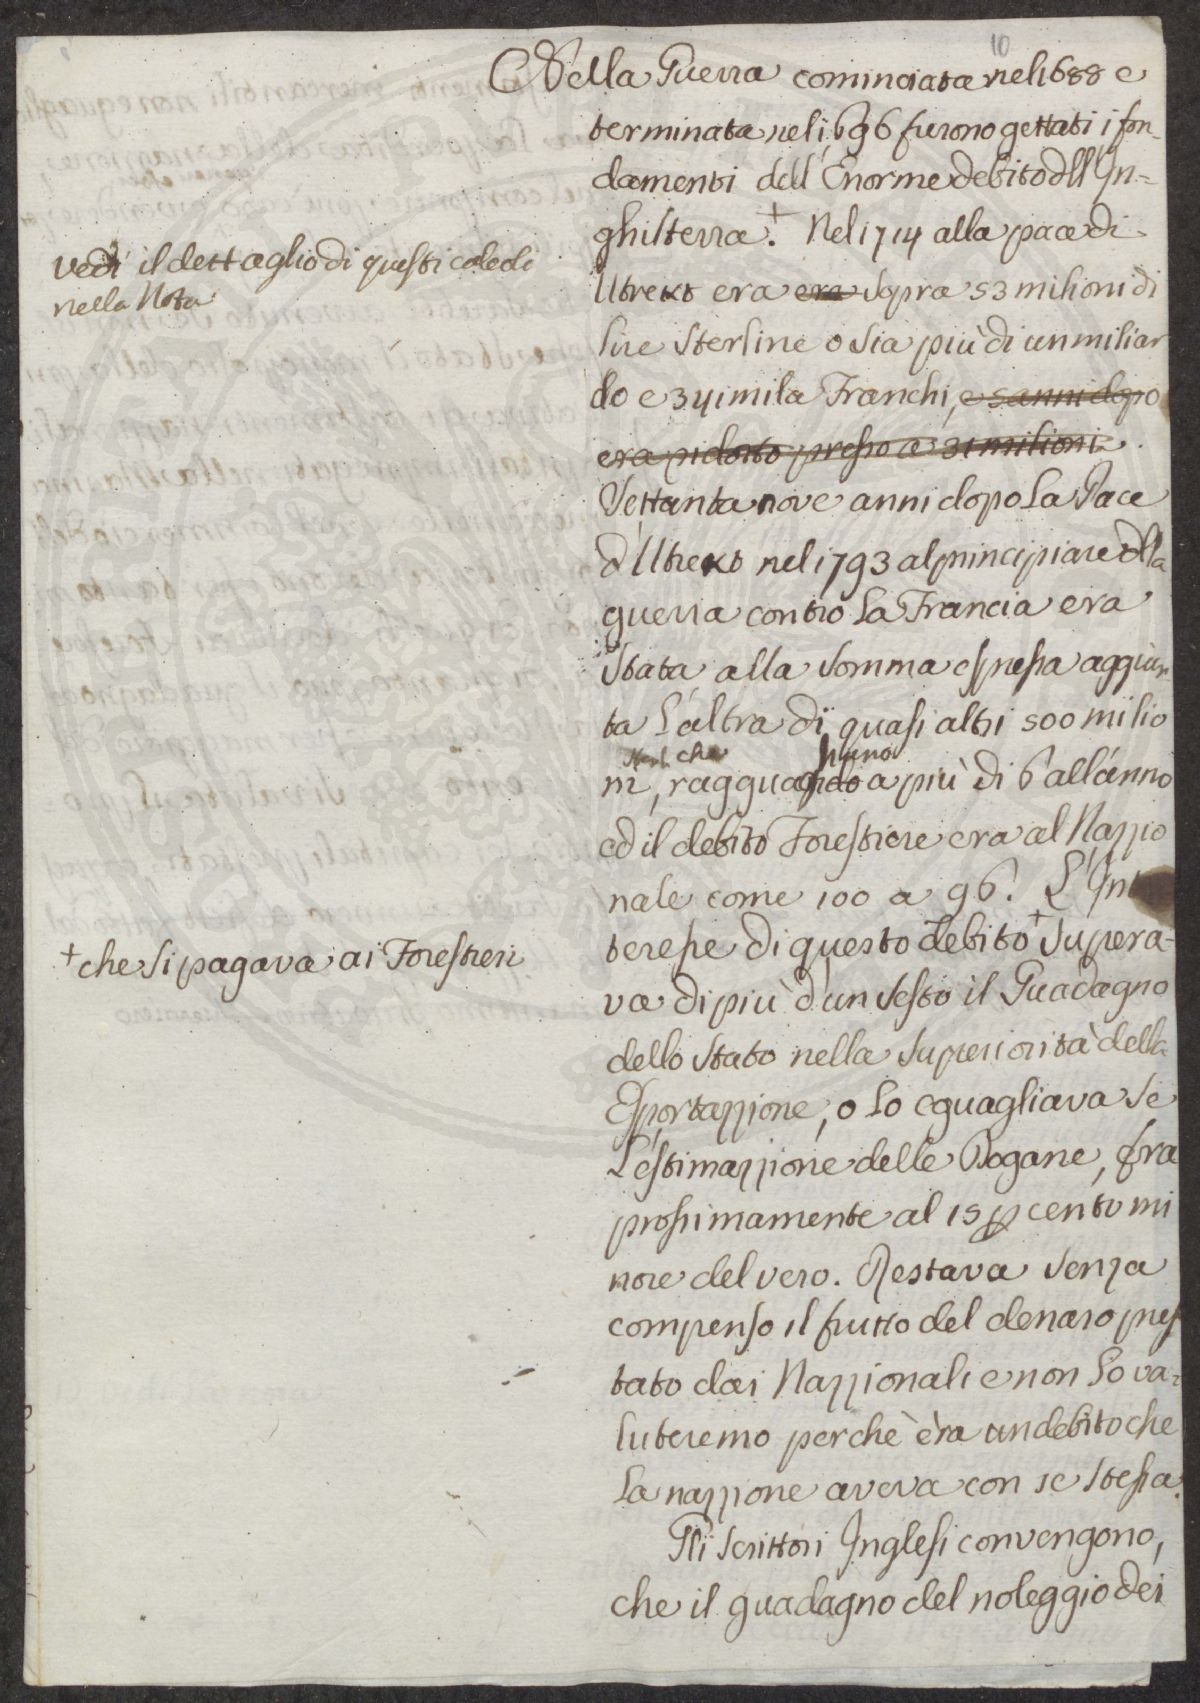 10
Della Guerra cominciata nel 1688 e
terminata nel 1696 furono gettati i fon-
damenti dell'Enorme debito dll'In=
ghilterra.+ Nel 1714 alla pace di
Utrext era era sopra 53 milioni di
lire sterline o sia più di un miliar
do e 341 mila Franchi, e 5 anni dopo
era ridotto presso a 31 milioni.
Settanta nove anni dopo la Pace
d'Utrext nel 1793 al principiare dlla
guerra contro la Francia era
stata alla somma espressa aggiun
ta l'altra di quasi altri 500 milio
che hano
ni, ragguagliato a più di 6 all'anno
ed il debito Forestiere era al Nazzio
nale come 100 a 96. L'Int
teresse di questo debito+ supera-
va di più d'un sesto il Guadagno
dello stato nella superiorità della
Esportazzione, o lo eguagliava se
L'estimazzione delle Dogane, fra
prossimamente al 15 p cento mi
nore del vero. Restava senza
compenso il frutto del denaro pres
tato dai Nazzionali e non lo va=
luteremo perchè èra un debito che
la nazzione aveva con se stessa.
Gli scrittori Inglesi convengono,
che il guadagno del noleggio dei
vedi il dettaglio di questi calcoli
nella Nota
+ che si pagava ai Forestieri